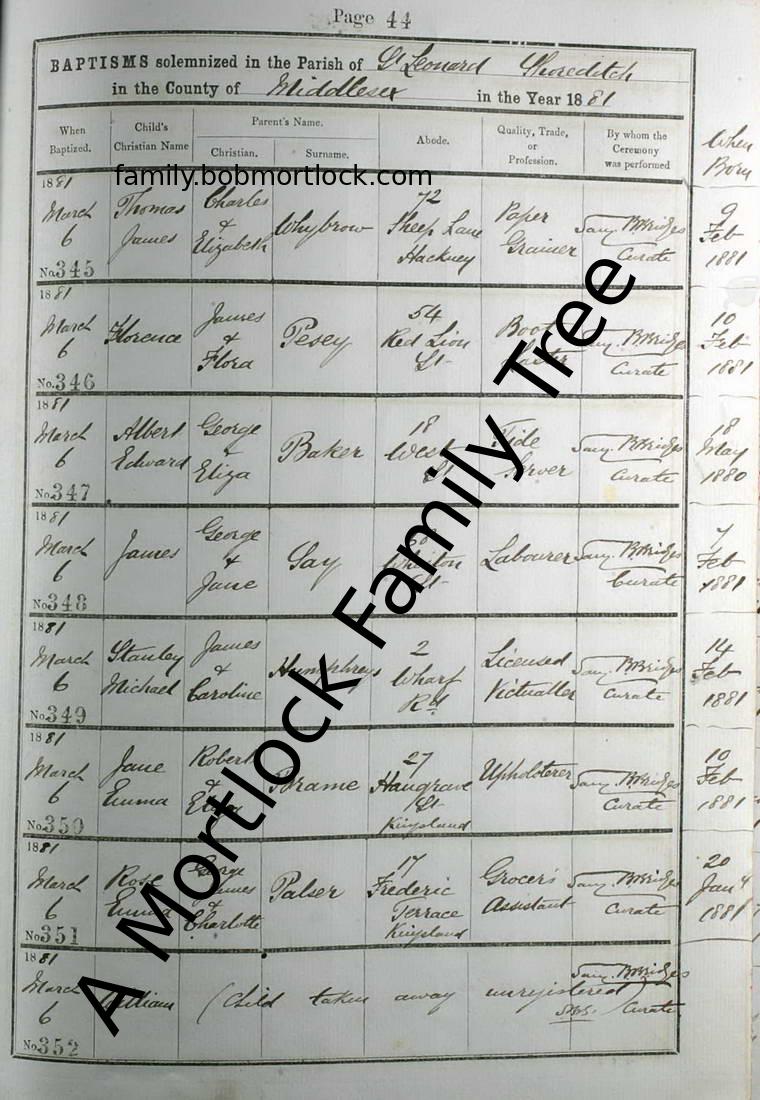 Page 44
BAPTISMS solemnized in the Parish of St Leonard Shoreditch
in the County of Middlesex in the Year 1881
When Baptized.
Child's Christian Name
Parent's Name.
Christian.
Surname.
Abode.
Quality, Trade, or Profession.
By whom the Ceremony was performed
When Born
family.bobmortlock.com
1881
March 6
No. 345
Thomas James
Charles & Elizabeth
Whybrow
72 Sheep Lane Hackney
Paper Grainer
Saml. B. Bridges Curate
9 Feb 1881
1881
March 6
No. 346
Florence
James & Flora
Pesey
54 Red Lion St
Boot
B. Bridges Curate
10 Feb 1881
1881
March 6
No. 347
Albert Edward
George & Eliza
Baker
18 West St
Tide
Saml. B. Bridges Curate
18 May 1880
1881
March 6
No. 348
James
George & Jane
Say
St
Labourer
Saml. B. Bridges Curate
7 Feb 1881
1881
March 6
No. 349
Stanley Michael
James & Caroline
Humphreys
2 Wharf Rd
Licensed Victualler
Saml. B. Bridges Curate
14 Feb 1881
1881
March 6
No. 350
Jane Emma
Robert & Eliza
Brame
27 Haugrave St Kingsland
Upholsterer
Saml. B. Bridges Curate
10 Feb 1881
1881
March 6
No. 351
Rose Emma
George James & Charlotte
Palser
17 Frederic Terrace Kingsland
Grocer's Assistant
Saml. B. Bridges Curate
20 Jany 1881
1881
March 6
No. 352
William
(Child taken away unregistered)
Saml. B. Bridges Curate
A Mortlock Family Tree